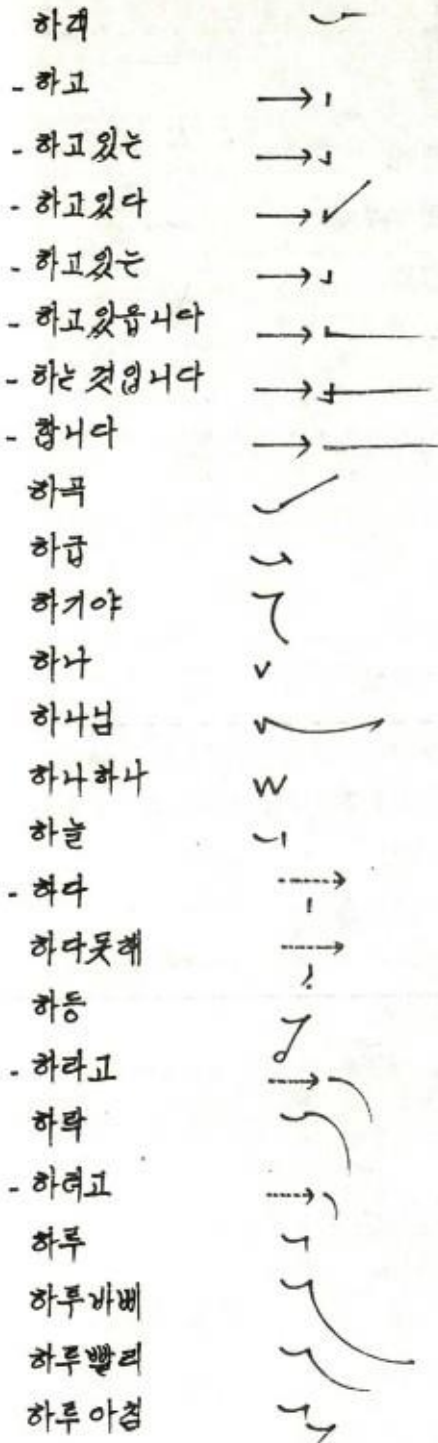 하래
- 하고
- 하고있는
- 하고있다
- 하고있는
- 하고있읍니다
- 하는 것입니다
- 합니다
하곡
하급
하기야
하나
하나님
하나하나
하늘
- 하다
하다못해
하등
- 하라고
하락
- 하려고
하루
하루바삐
하루빨리
하루아침